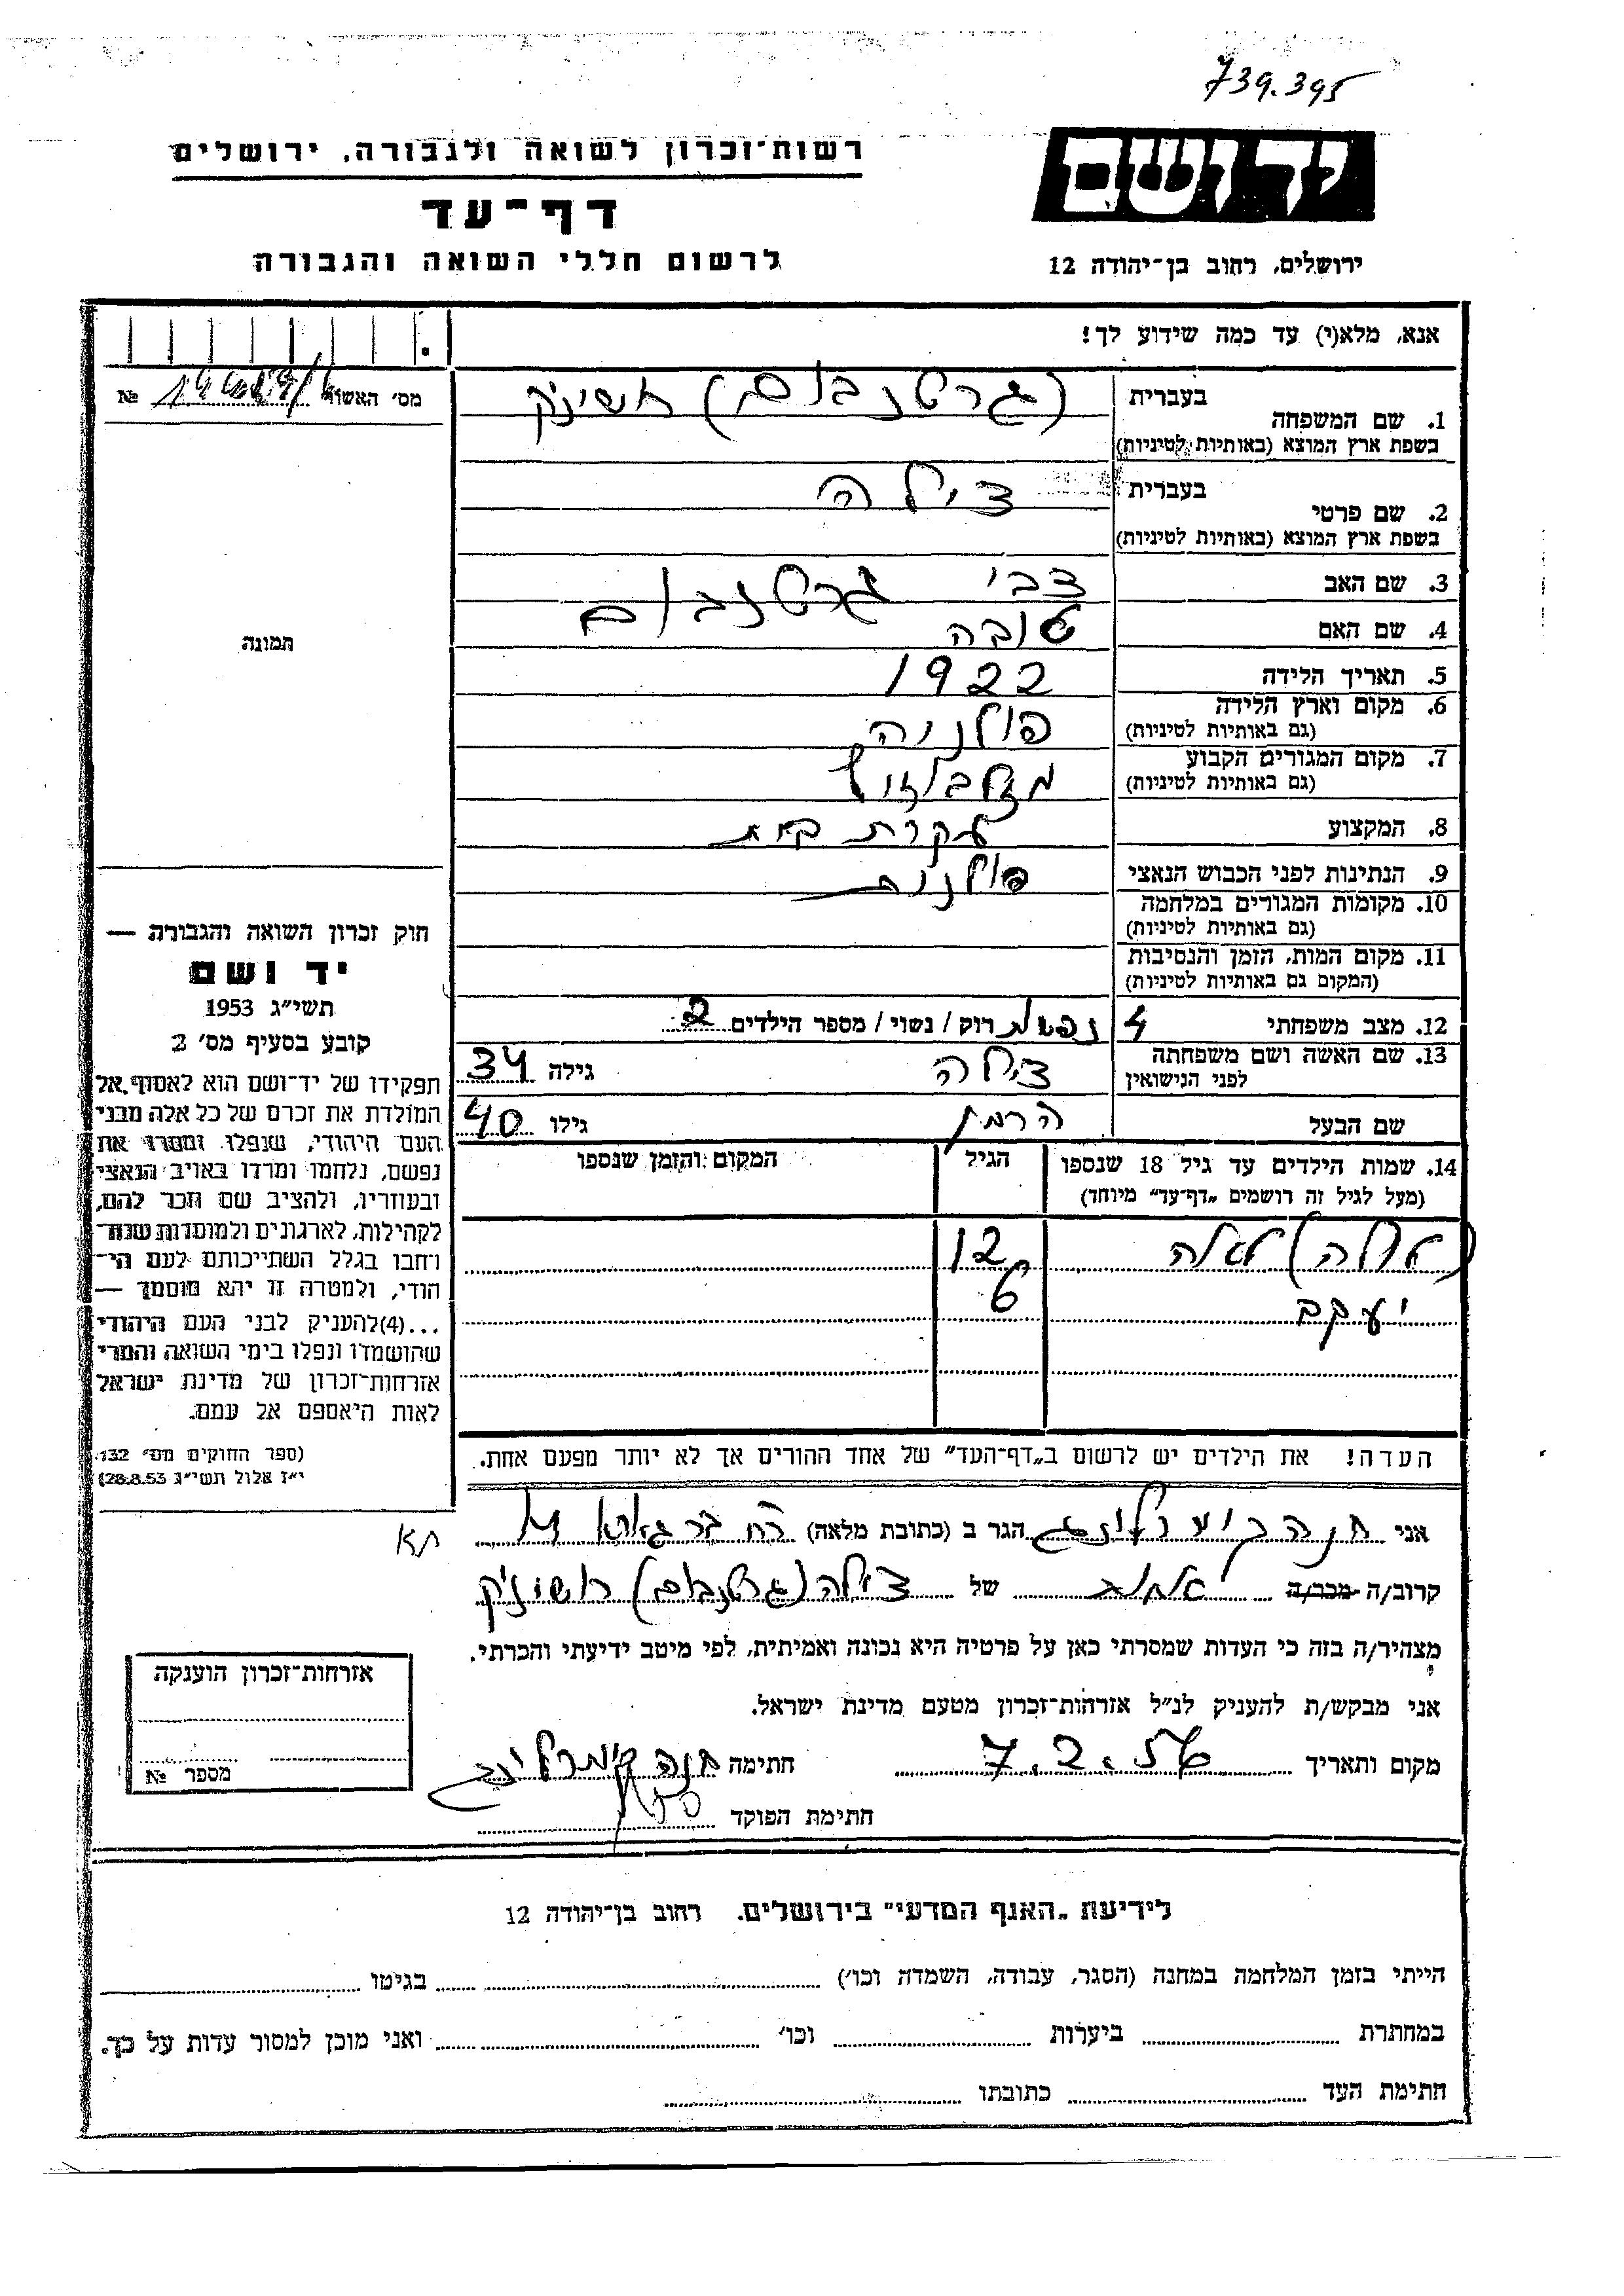 739.395
יד ושם
רשות־זכרון לשואה ולגבורה, ירושלים
דף־עד
לרשום חללי השואה והגבורה
ירושלים, רחוב בן־יהודה 12
אנא, מלא(י) עד כמה שידוע לך!
מס׳ האשור №
תמונה
חוק זכרון השואה והגבורה —
יד ושם
תשי״ג 1953
קובע בסעיף מס׳ 2
תפקידו של יד־ושם הוא לאסוף אל
המולדת את זכרם של כל אלה מבני
העם היהודי, שנפלו ומסרו את
נפשם, נלחמו ומרדו באויב הנאצי
ובעוזריו, ולהציב שם וזכר להם,
לקהילות, לארגונים ולמוסדות שנח־
רבו בגלל השתייכותם לעם הי־
הודי, ולמטרה זו יהא מוסמך —
...(4)להעניק לבני העם היהודי
שהושמדו ונפלו בימי השואה והמרי
אזרחות־זכרון של מדינת ישראל
לאות היאספם אל עמם.
(ספר החוקים מס׳ 132
י״ז אלול תשי״ג 28.8.53)
1. שם המשפחה בעברית (גרטנבוים)
בשפת ארץ המוצא (באותיות לטיניות)
2. שם פרטי בעברית צילה
בשפת ארץ המוצא (באותיות לטיניות)
3. שם האב צבי גרטנבוים
4. שם האם טובה
5. תאריך הלידה 1922
6. מקום וארץ הלידה פולניה
(גם באותיות לטיניות)
7. מקום המגורים הקבוע
(גם באותיות לטיניות)
8. המקצוע עקרת בית
9. הנתינות לפני הכבוש הנאצי פולנית
10. מקומות המגורים במלחמה
(גם באותיות לטיניות)
11. מקום המות, הזמן והנסיבות
(המקום גם באותיות לטיניות)
12. מצב משפחתי 4 רוק / נשוי / מספר הילדים 2
13. שם האשה ושם משפחתה צילה גילה 34
לפני הנישואין
שם הבעל הרמן גילו 40
14. שמות הילדים עד גיל 18 שנספו הגיל המקום והזמן שנספו
(מעל לגיל זה רושמים „דף־עד״ מיוחד)
12
יעקב 6
הערה! את הילדים יש לרשום ב„דף־העד״ של אחד ההורים אך לא יותר מפעם אחת.
אני חנה הגר ב (כתובת מלאה)
קרוב/ה מכר/ה של צילה (גרטנבוים)
מצהיר/ה בזה כי העדות שמסרתי כאן על פרטיה היא נכונה ואמיתית, לפי מיטב ידיעתי והכרתי.
אני מבקש/ת להעניק לנ״ל אזרחות־זכרון מטעם מדינת ישראל.
מקום ותאריך 7.2.56 חתימה חנה
חתימת הפוקד
אזרחות־זכרון הוענקה
מספר №
לידיעת „האגף המדעי״ בירושלים. רחוב בן־יהודה 12
הייתי בזמן המלחמה במחנה (הסגר, עבודה, השמדה וכו׳) בגיטו
במחתרת ביערות וכו׳ ואני מוכן למסור עדות על כך.
חתימת העד כתובתו